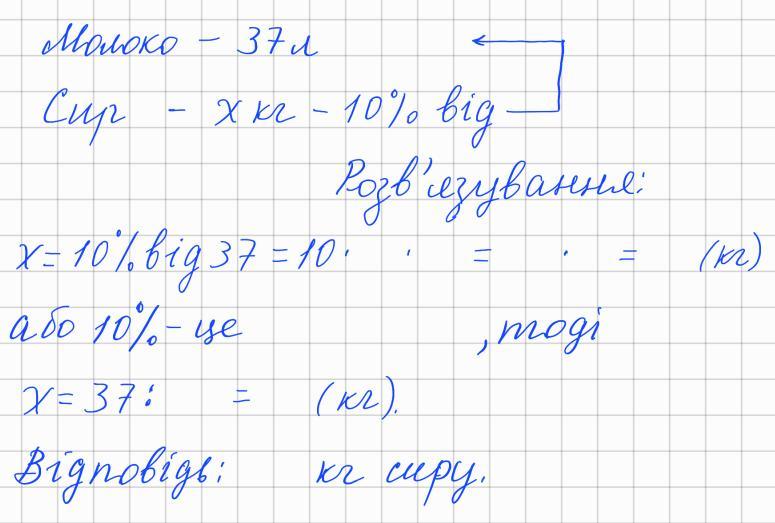 Молоко - 37 л
Сир - х кг - 10% від
Розв'язування:
х = 10% від 37 = 10 · · = · = (кг)
або 10% - це , тоді
х = 37 : = (кг).
Відповідь: кг сиру.